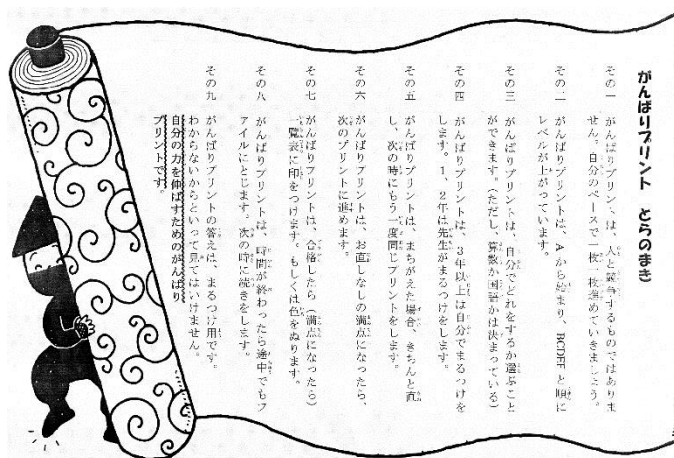 がんばりプリント とらのまき
その一 がんばりプリントは、人と競争するものではありま
せん。自分のペースで一枚一枚進めていきましょう。
その二 がんばりプリントは、Aから始まり、BCDEFと順に
レベルが上がっています。
その三 がんばりプリントは、自分でどれをするか選ぶこと
ができます。（ただし、算数か国語かは決まっている）
その四 がんばりプリントは、3年以上は自分でまるつけを
します。1、2年は先生がまるつけをします。
その五 がんばりプリントは、まちがえた場合、きちんと直
し、次の時にもう一度同じプリントをします。
その六 がんばりプリントは、お直しなしの満点になったら、
次のプリントに進めます。
その七 がんばりプリントは、合格したら（満点になったら）
一覧表に印をつけます。もしくは色をぬります。
その八 がんばりプリントは、時間が終わったら途中でもフ
ァイルにとじます。次の時に続きをします。
その九 がんばりプリントの答えは、まるつけ用です。
わからないからといって見てはいけません。
自分の力を伸ばすためのがんばり
プリントです。